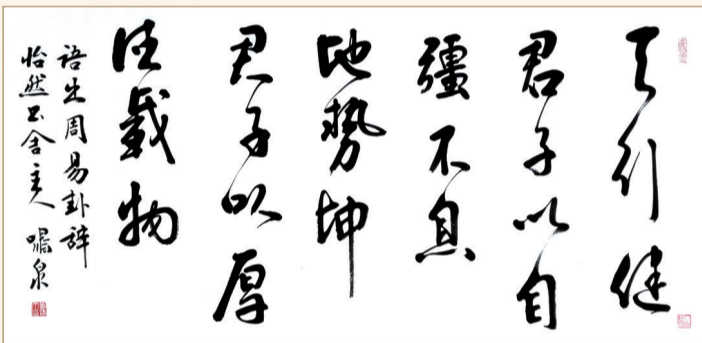 天行健
君子以自
彊不息
地势坤
君子以厚
德载物
语出周易卦辞
怡然书舍主人 啸泉